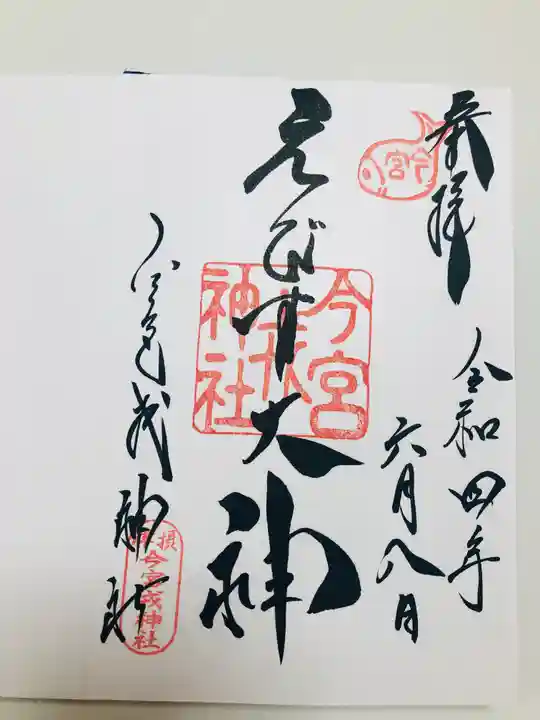 奉拝
令和四年
六月八日
今宮
えびす大神
今宮
戎
神社
今宮戎神社
摂
今宮戎神社